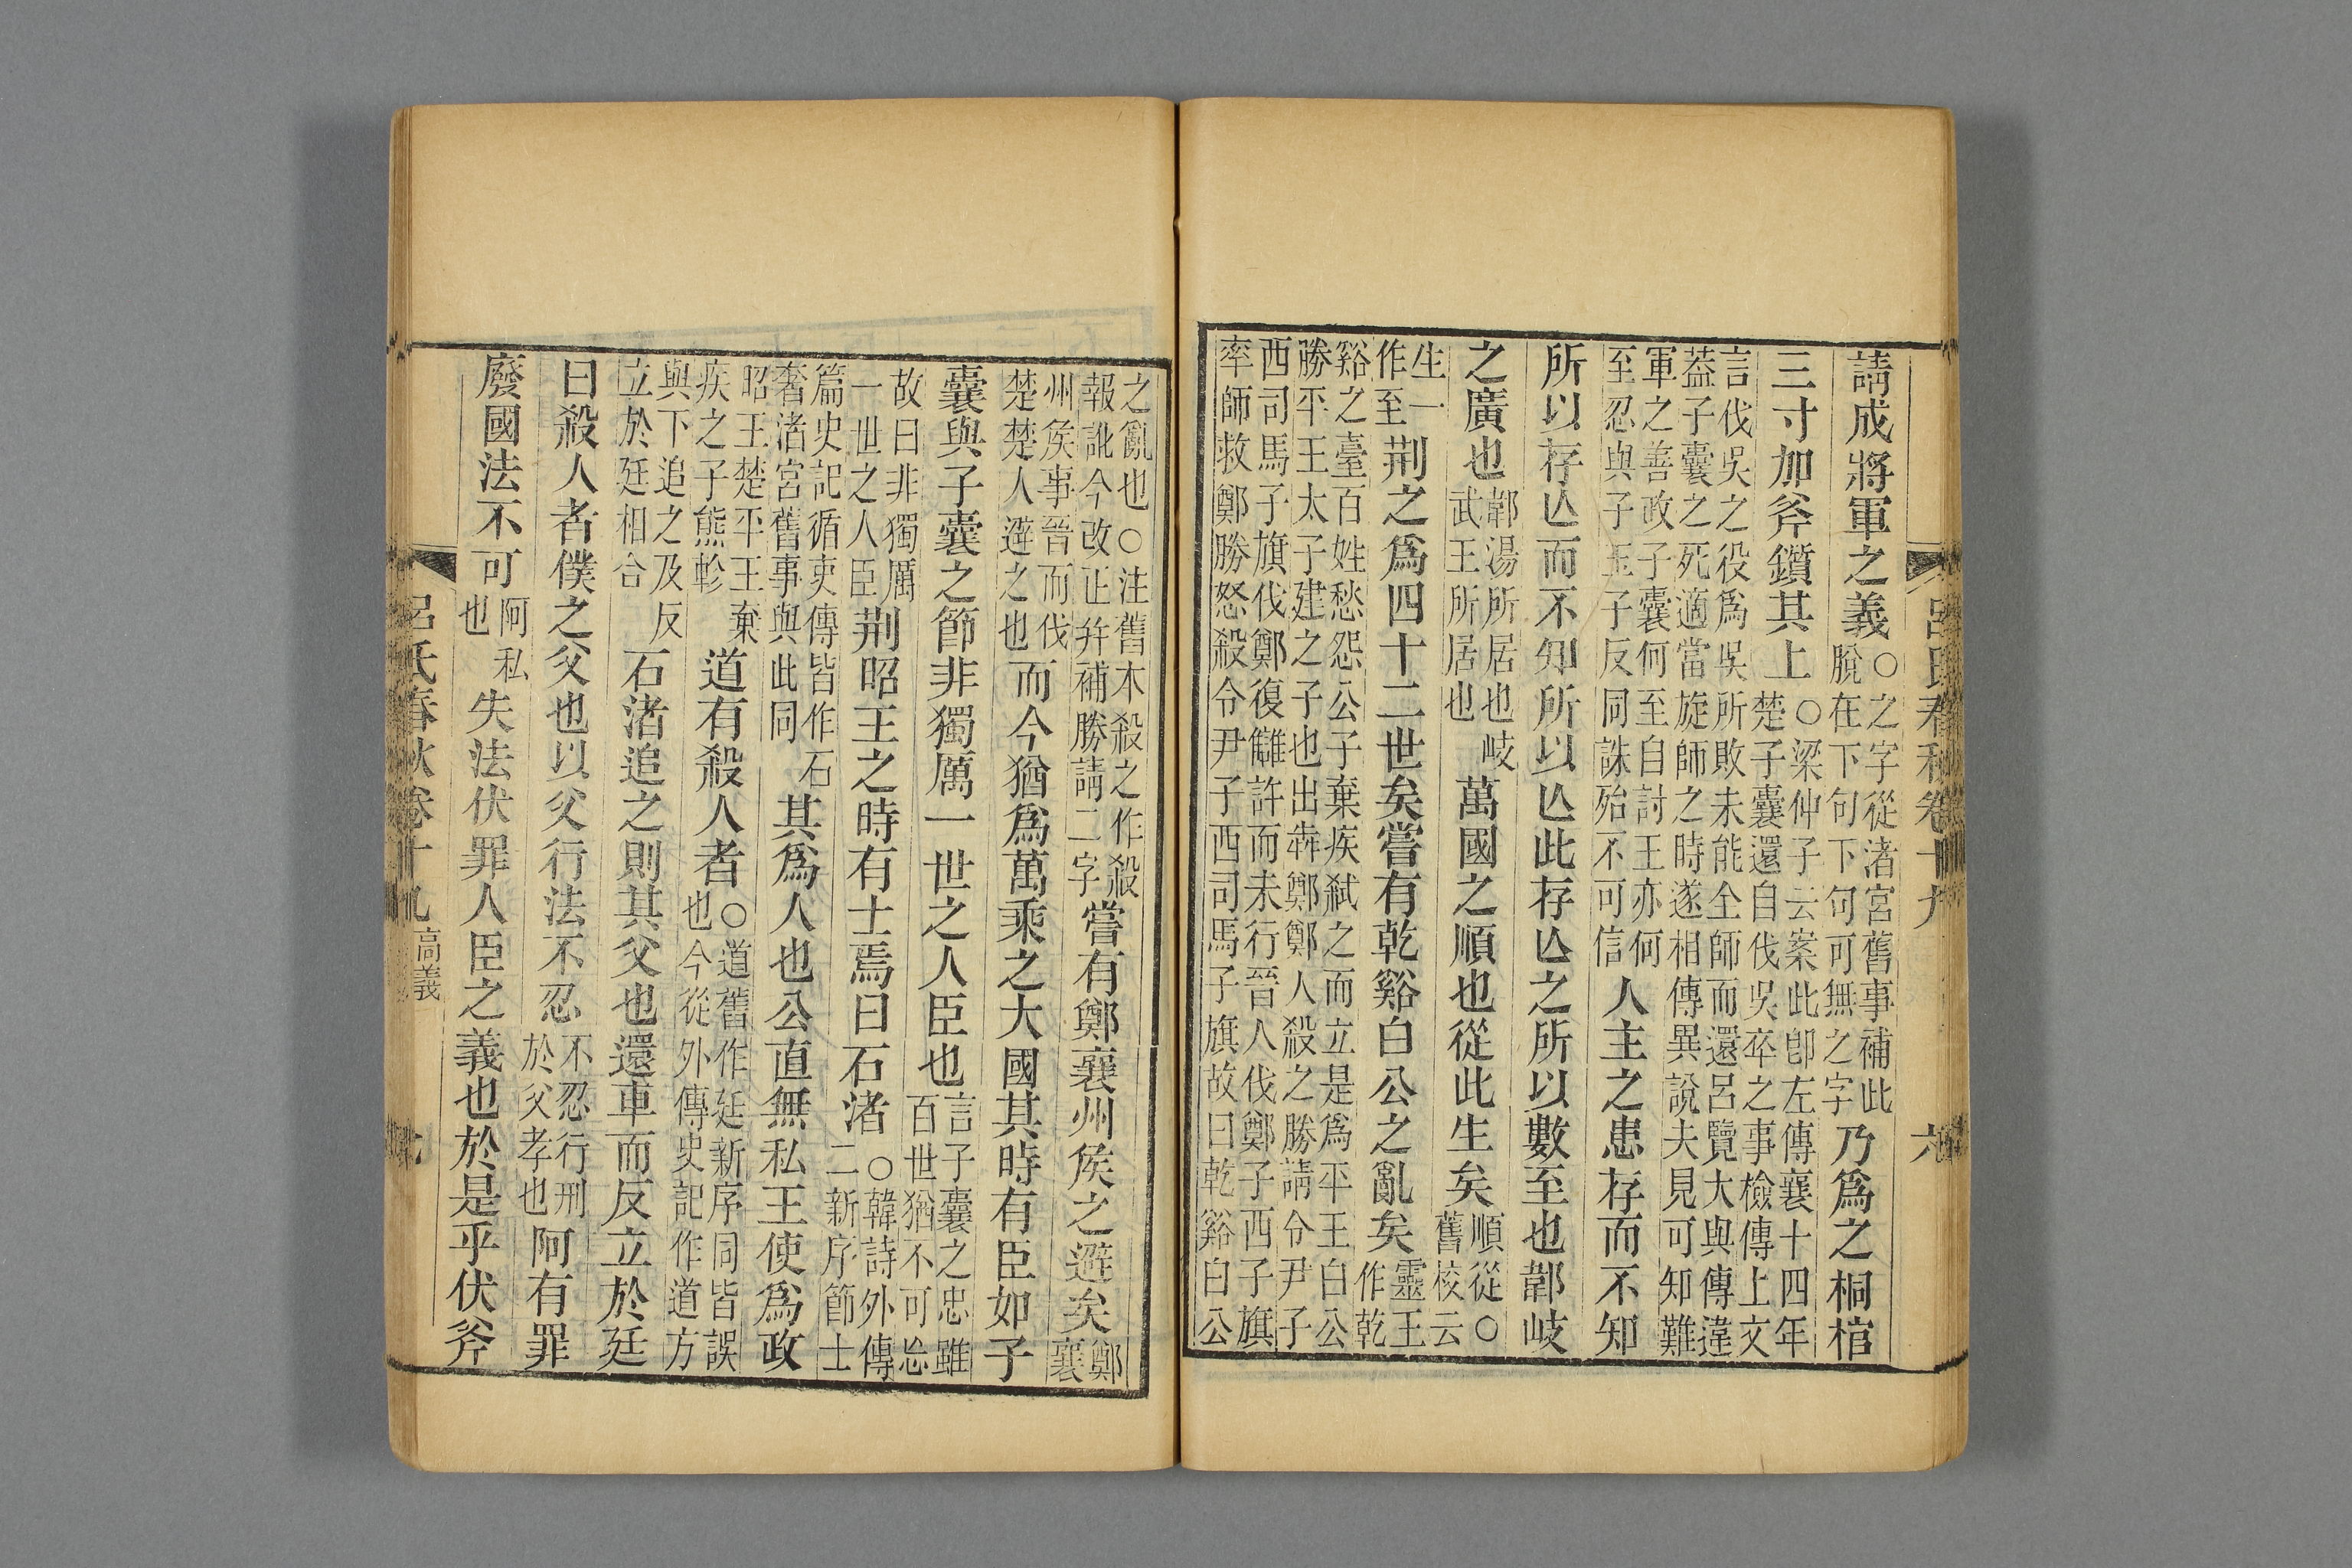 呂氏春秋卷十九　六
請成將軍之義○之字從渚宮舊事補此脫在下句下句可無之字乃爲之桐棺
三寸加斧鑕其上○梁仲子云案此卽左傳襄十四年楚子囊還自伐吳卒之事檢傳上文
言伐吳之役爲吳所敗未能全師而還呂覽大與傳違葢子囊之死適當旋師之時遂相傳異說夫見可知難
軍之善政子囊何至自討王亦何至忍與子玉子反同誅殆不可信人主之患存而不知
所以存亾而不知所以亾此存亾之所以數至也郼岐
之廣也郼湯所居也岐武王所居也萬國之順也從此生矣順從○舊校云
生一作至荆之爲四十二世矣嘗有乾谿白公之亂矣靈王作乾
谿之臺百姓愁怨公子棄疾弑之而立是爲平王白公勝平王太子建之子也出犇鄭鄭人殺之勝請令尹子
西司馬子旗伐鄭復讎許而未行晉人伐鄭子西子旗率師救鄭勝怒殺令尹子西司馬子旗故曰乾谿白公
之亂也○注舊本殺之作殺報訛今改正幷補勝請二字嘗有鄭襄州矦之避矣鄭襄
州矦事晉而伐楚楚人避之也而今猶爲萬乘之大國其時有臣如子
囊與子囊之節非獨厲一世之人臣也言子囊之忠雖百世猶不可忘
故曰非獨厲一世之人臣荆昭王之時有士焉曰石渚○韓詩外傳二新序節士
篇史記循吏傳皆作石奢渚宮舊事與此同其爲人也公直無私王使爲政
昭王楚平王棄疾之子熊軫道有殺人者○道舊作廷新序同皆誤也今從外傳史記作道方
與下追之及反立於廷相合石渚追之則其父也還車而反立於廷
曰殺人者僕之父也以父行法不忍不忍行刑於父孝也阿有罪
廢國法不可阿私也失法伏罪人臣之義也於是乎伏斧
呂氏春秋卷十九高義